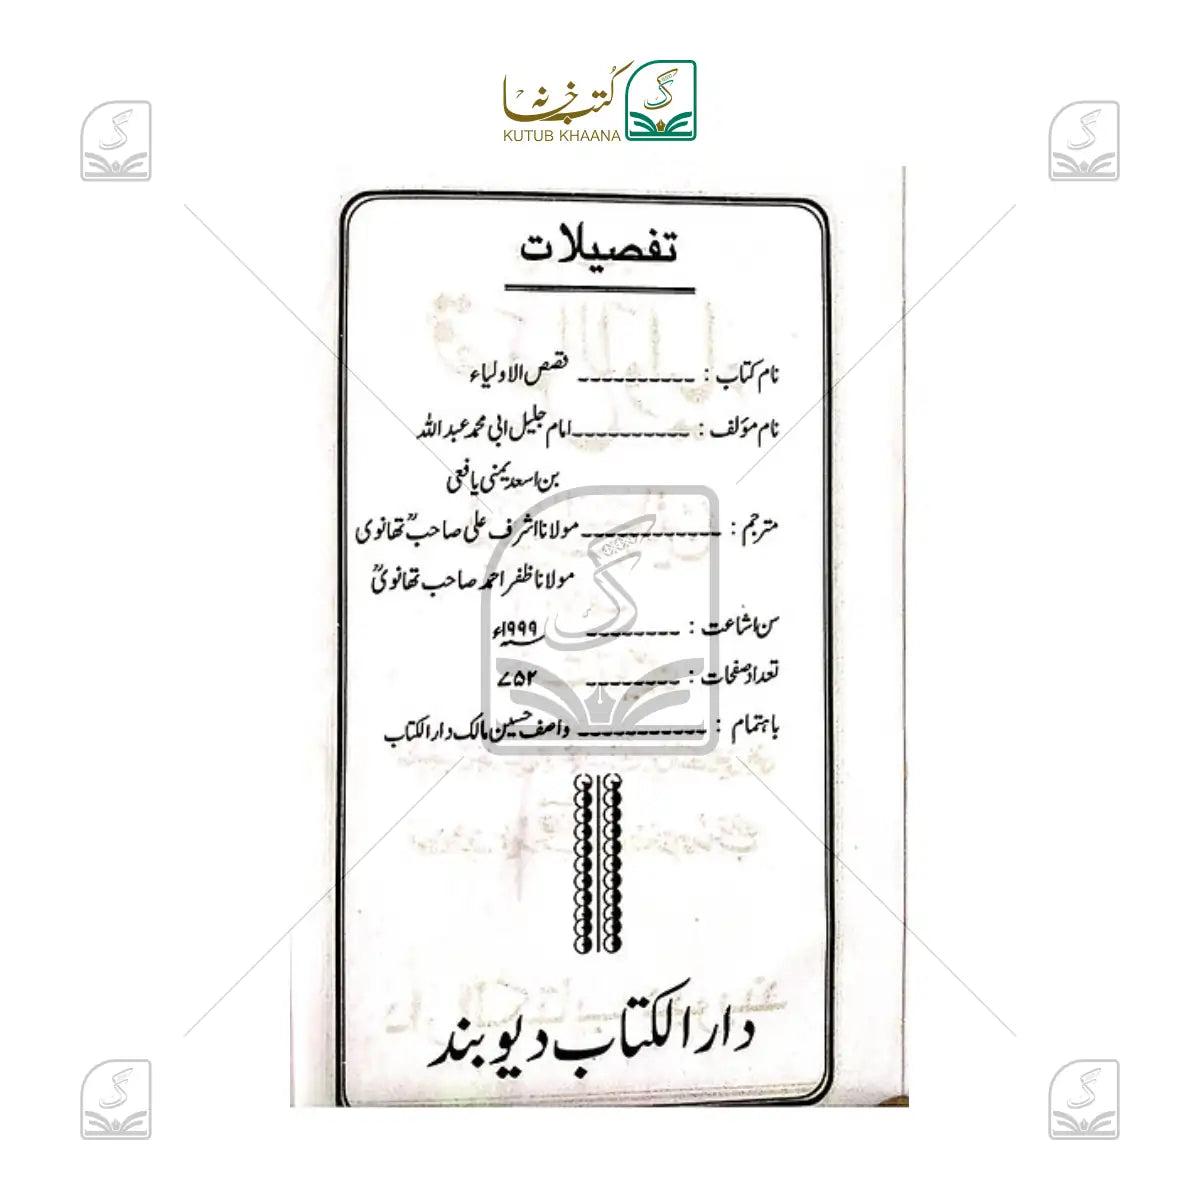 کتب خانہ
KUTUB KHAANA
تفصیلات
نام کتاب : ---------- قصص الاولیاء
نام مؤلف : ---------- امام جلیل ابی محمد عبد اللہ
بن اسعد یمنی یافعی
مترجم : ------------ مولانا اشرف علی صاحبؒ تھانوی
مولانا ظفر احمد صاحب تھانویؒ
سن اشاعت : -------- ۱۹۹۹ء
تعداد صفحات : -------- ۷۵۲
باہتمام : ----------- واصف حسین مالک دار الکتاب
دار الکتاب دیوبند